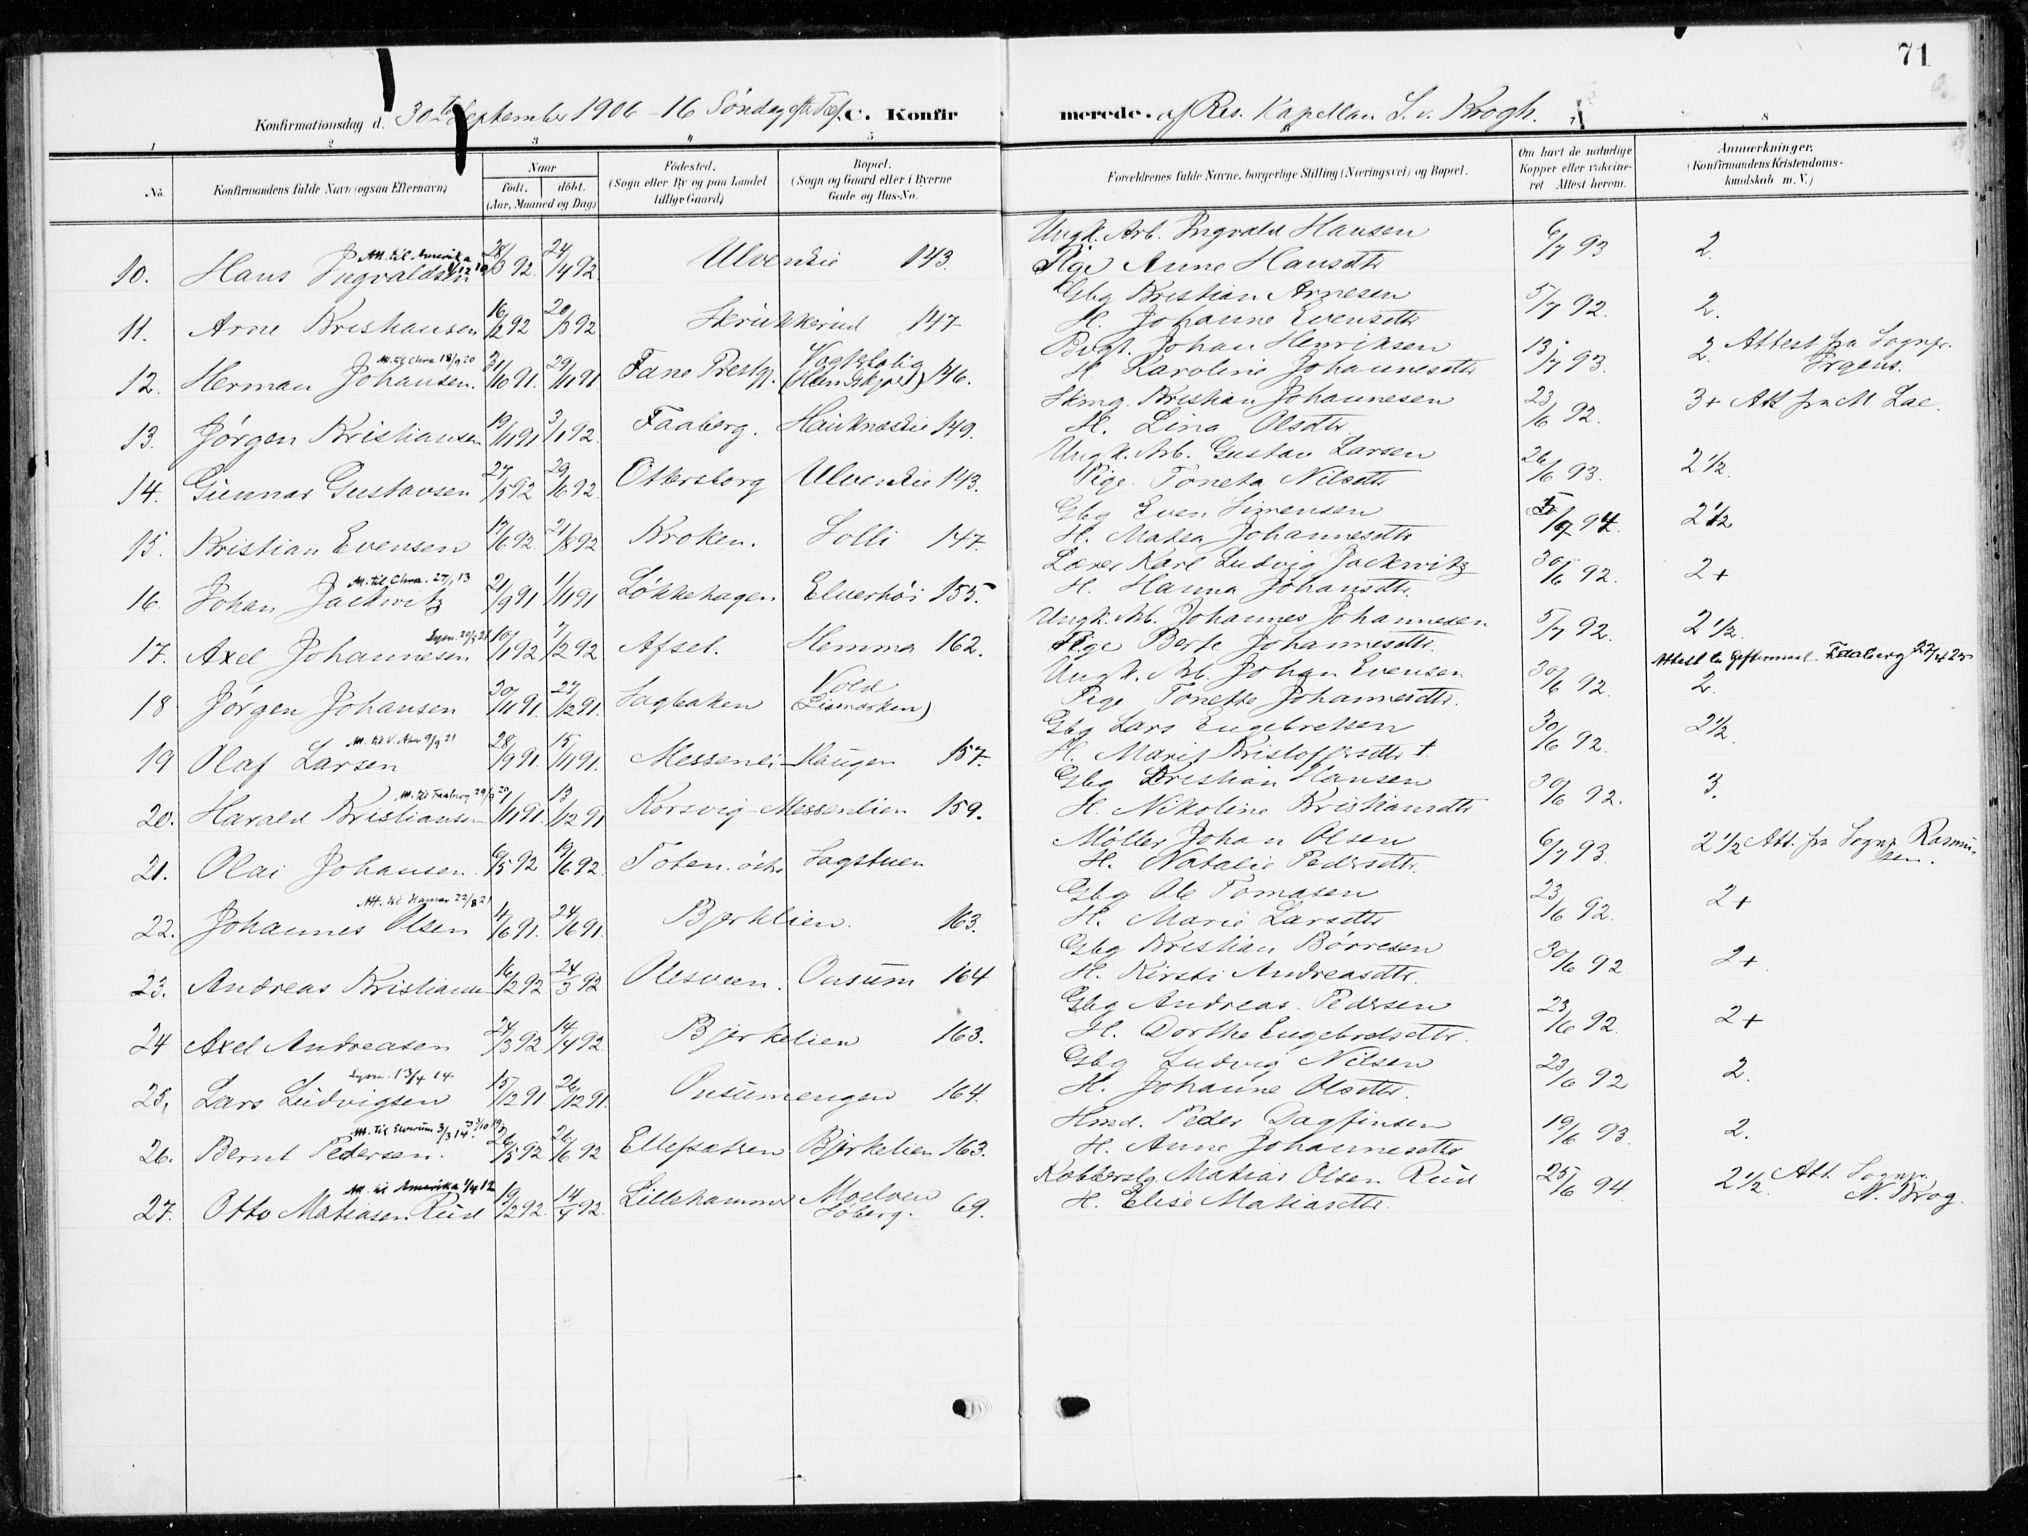 71
Konfirmationsdag d. 30te September 1906 - 16 Søndag eft. Tref. C. Konfir merede. af Res. Kapellan S. v. Krogh.
1 2 3 4 5 7 8
No. Konfirmandens fulde Navn (ogsaa Efternavn) Naar født. døbt. (Aar, Maaned og Dag) Fødested. (Sogn eller By og paa Landet tillige Gaard) Bopæl. (Sogn og Gaard eller i Byerne Gade og Hus-No. Forældrenes fulde Navne, borgerlige Stilling (Næringsvei) og Bopæl. Om havt de naturlige Kopper eller vakcineret Attest herom. Anmærkninger. (Konfirmandens Kristendomskundskab m. V.)
Att. til Amerika 1/12 10
Ungk. Arb. Ingvald Hansen
10. Hans Ingvaldsen 28/3 92. 24/4 92 Ulvenlie 143. Pige Anne Hansdtr 6/7 93 2.
Gbg Kristian Arnesen
11. Arne Kristiansen 16/2 92 20/3 92 Skrukkerud 147. H. Johanne Evensdtr 5/7 92. 2.
Att. til Chra 18/9 20
Bvgt. Johan Henriksen
12. Herman Johansen. 31/10 91. 29/11 91 Fane Prestg. Vogtbolig 146. H. Karoline Johannesdtr 13/7 93. 2. Attest fra Sognepr. Irgens.
Skmg. Kristian Johannesen
13. Jørgen Kristiansen 19/11 91 3/1 92. Faaberg. Hauknæslie 149. H. Lina Olsdtr 23/6 92. 3+ Att fra M Lae.
Ungk. Arb. Gustav Larsen
14. Gunnar Gustavsen 27/5 92 29/6 92. Ottersborg Ulvenlie 143. Pige Toneta Nilsdtr 26/6 93. 2 1/2.
Gbg Even Simensen
15. Kristian Evensen 17/6 92. 21/8 92 Kroken. Solli 147. H. Matea Johannesdtr 5/7 94. 2 1/2
Att. til Chra. 27/1 13
Lærer Karl Ludvig Jackwitz
16. Johan Jackwitz 21/9 91 1/11 91 Løkkehagen Elverhøi 155. H. Hanna Johansdtr. 30/6 92. 2+
Lysn. 20/5 21
Ungk. Arb. Johannes Johannesen
17. Axel Johannesen 10/1 92 7/2 92 Afset. Hemma 162. Pige Berte Johannesdtr. 5/7 92. 2 1/2.
Attest til Giftermaal Faaberg 22/4 25
Ungk. Arb. Johan Evensen
18 Jørgen Johansen 30/11 91. 27/12 91. Sagbaken Vold (Liemarken) Pige Tonette Johannesdtr. 30/6 92. 2.
Gbg Lars Engebretsen
19 Olaf Larsen 28/9 91. 15/11 91. Messenli - Haugen 157. H. Marit Kristoffersdtr + 30/6 92. 2 1/2.
Att. til Faaberg 29/9 20
Gbg Kristian Hansen
20. Harald Kristiansen 1/11 91. 13/12 91 Korsvig - Messenlien 159. H. Nikoline Kristiansdtr 30/6 92. 3.
Møller Johan Olsen
21. Olai Johansen. 6/5 92 19/6 92. Toten. østre Sagstuen H. Natalie Pedersdtr. 6/7 93. 2 1/2 Att. fra Sognepr. Rasmussen.
Att. til Hamar 22/8 21
Gbg Ole Tomasen
22. Johannes Olsen 4/6 91. 24/6 91. Bjerklien. 163. H. Marie Larsdtr 23/6 92. 2+
Gbg Kristian Børresen
23. Andreas Kristiansen 16/2 92 24/3 92 Olesveen. Onsum 164 H. Kirsti Andreasdtr. 30/6 92 2+
Gbg Andreas Pedersen
24 Axel Andreasen 24/3 92 14/4 92 Bjerkelien 163. H. Dorthe Engebretsdtr. 23/6 92. 2+
Lysn. 13/4 14
Gbg Ludvig Nilsen
25. Lars Ludvigsen 15/12 91 26/12 91. Onsumengen 164. H. Johanne Olsdtr. 23/6 92 2.
Att. til Elverum 3/3 14
Hmd. Peder Dagfinsen
26. Bernt Pedersen. 26/5 92 26/6 92 Ellefsætren Bjerkelien 163. H. Anne Johannesdtr 19/6 93. 2.
Att. til Amerika 1/4 12
Kobbersl. Matias Olsen Rud
27. Otto Matiasen Rud 19/2 92. 14/4 92. Lillehammer Moelven Søberg. 69. H. Elise Matiasdtr. 25/6 94. 2 1/2. Att. Sognepr. N. Krog.